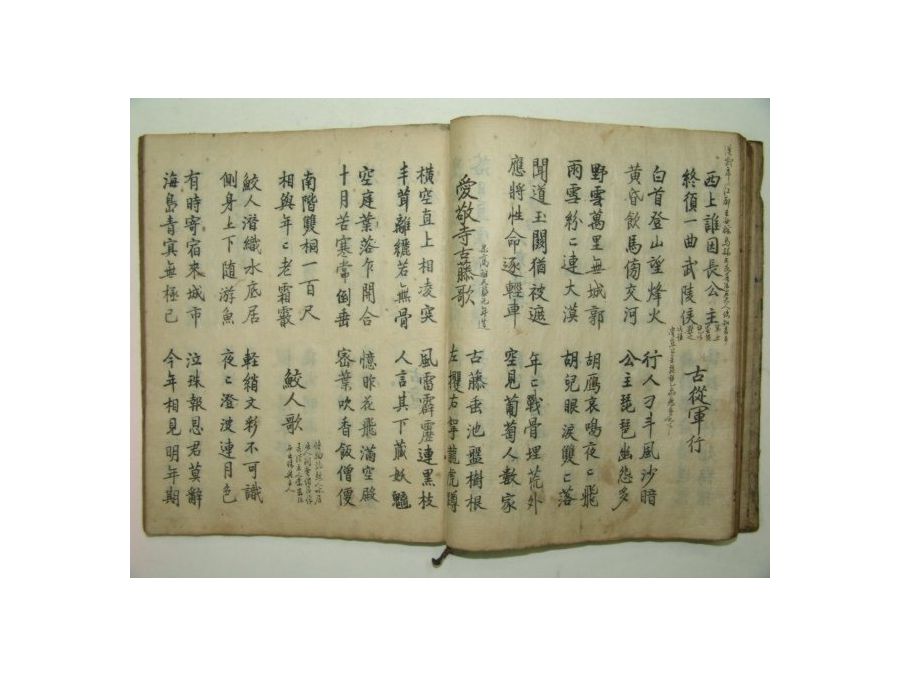 西上誰因長公主
終須一曲武陵侯
古從軍行
白首登山望烽火
黃昏飲馬傍交河
行人刁斗風沙暗
公主琵琶幽怨多
野雲萬里無城郭
雨雪紛〻連大漠
胡鴈哀鳴夜〻飛
胡兒眼淚雙〻落
聞道玉關猶被遮
應將性命逐輕車
年〻戰骨埋荒外
空見葡萄人數家
愛敬寺古藤歌
古藤垂池盤樹根
左攫右寧龍虎蹲
橫空直上相凌突
丰茸離纚若無骨
風雷霹靂連黑枝
人言其下藏妖魑
空庭葉落乍開合
十月苦寒常倒垂
憶昨花飛滿空殿
密葉吹香飯僧便
南階雙桐一百尺
相與年〻老霜霰
鮫人歌
鮫人潛織水底居
側身上下隨游魚
輕綃文彩不可識
夜〻澄波連月色
有時寄宿來城市
海島青冥無極已
泣珠報恩君莫辭
今年相見明年期